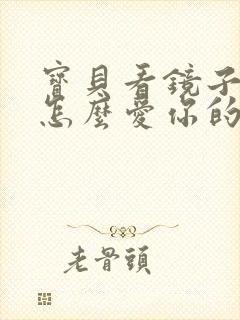 寶貝看鏡子
怎麼愛你的
老骨頭